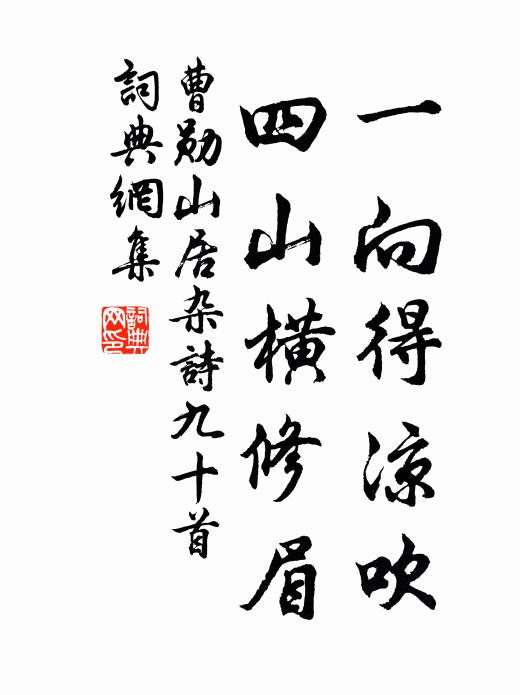 一向得涼吹
四山橫修眉
曹勛山居杂詩九十首
詞典網集
詞典
网印